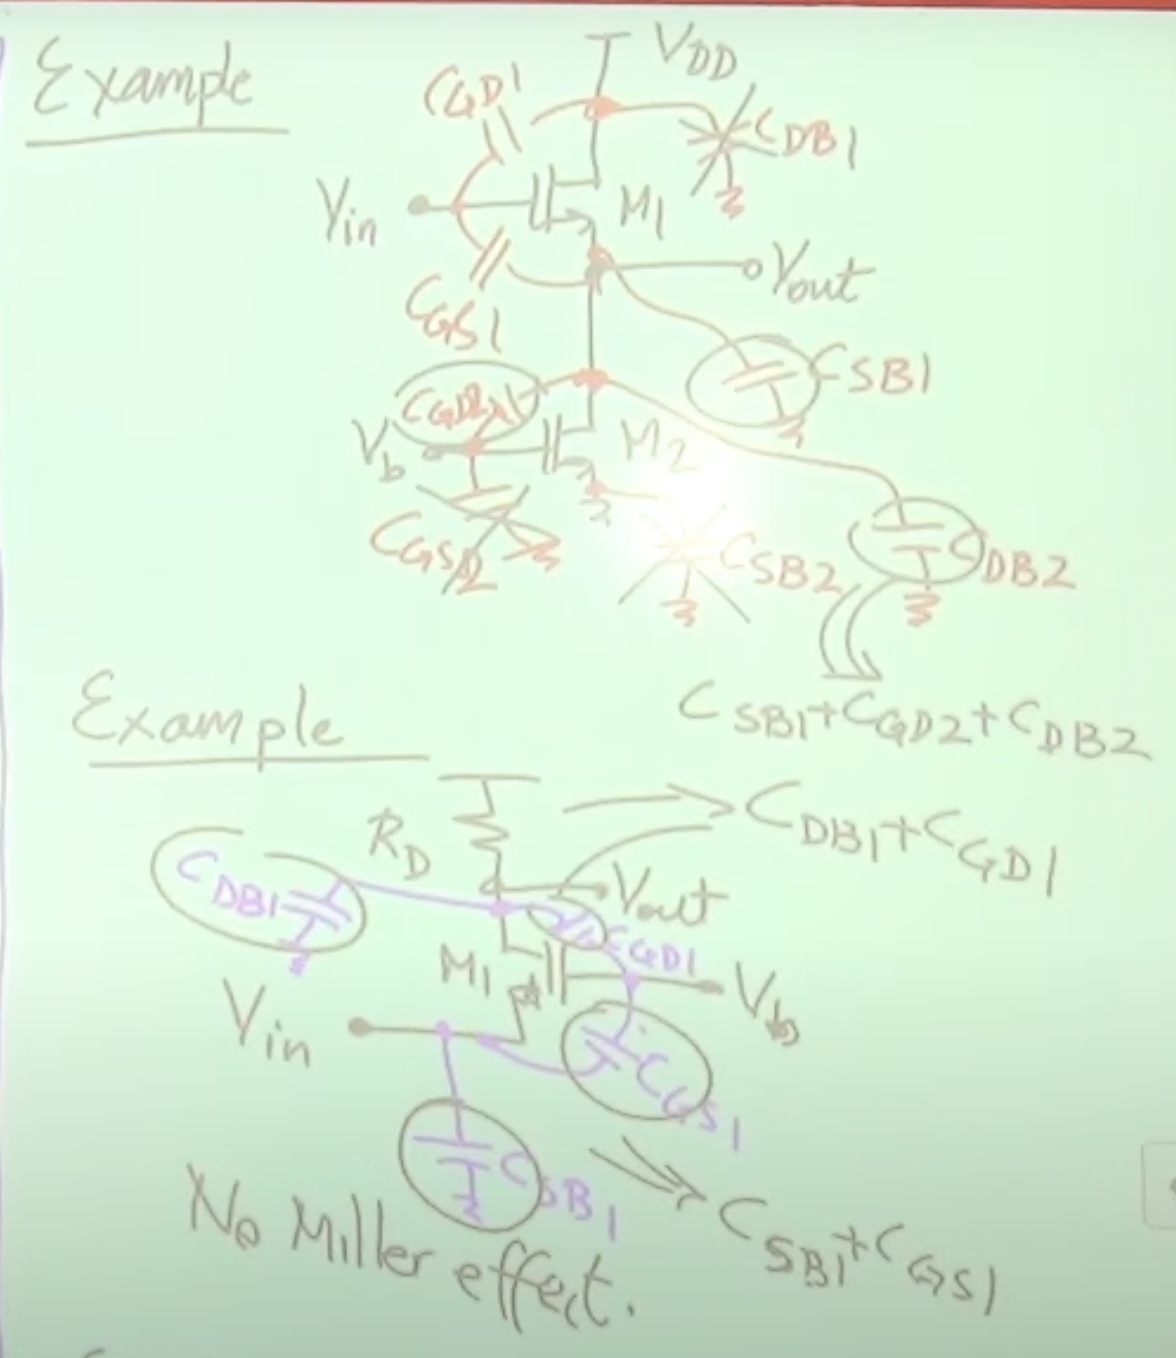 Example
VDD
CGD1
CDB1
Vin
M1
Vout
CGS1
CSB1
CGD2
Vb
M2
CGS2
CSB2
CDB2
CSB1+CGD2+CDB2
Example
RD
CDB1+CGD1
CDB1
Vout
CGD1
M1
Vb
Vin
CGS1
CSB1
CSB1+CGS1
No Miller effect.